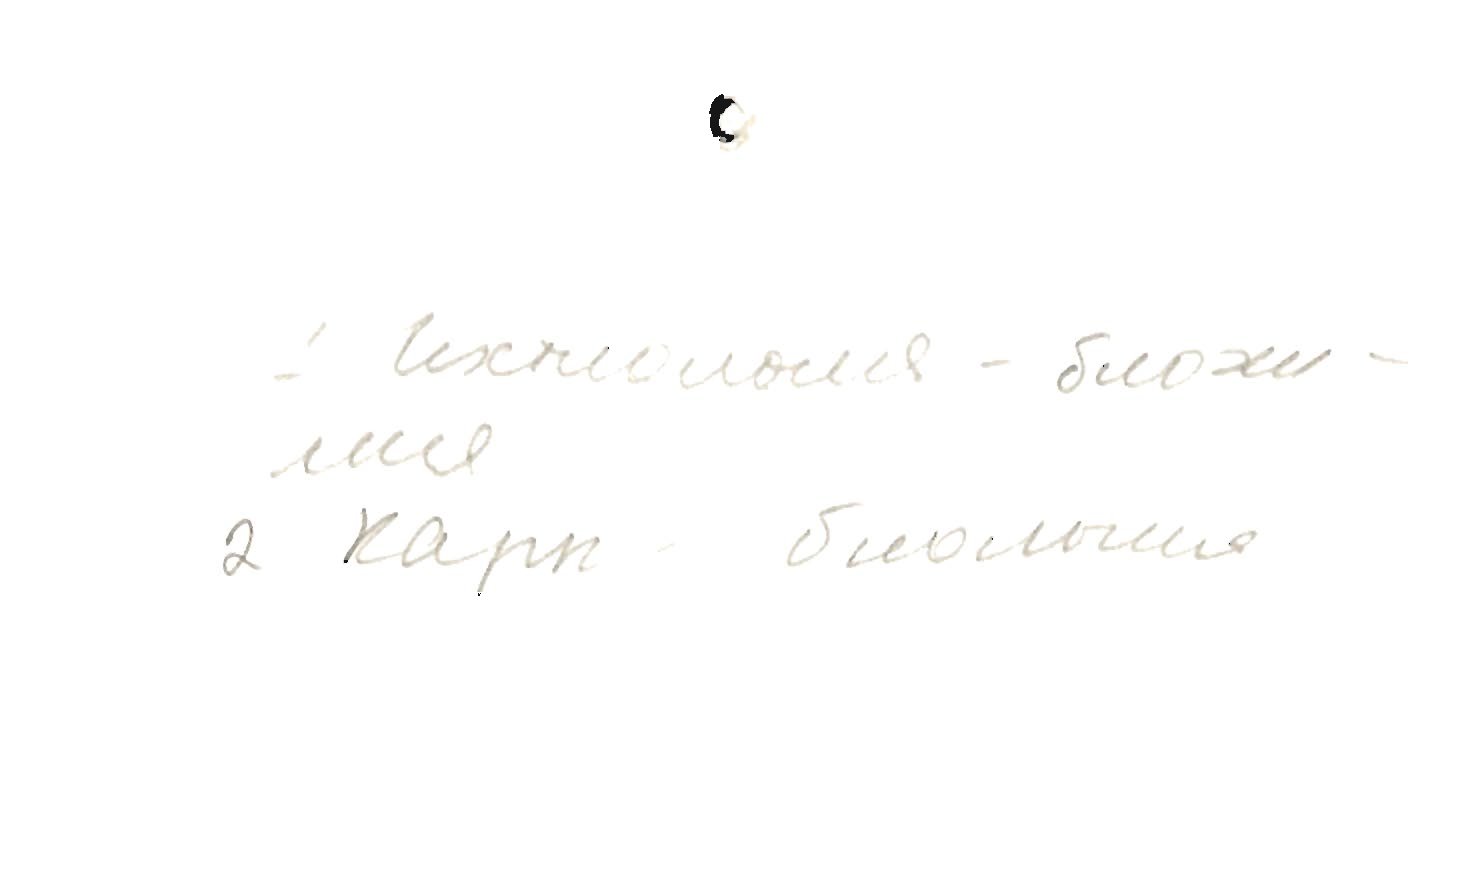 1 Ихтиология - биохи-
мия
2 Карп - биология